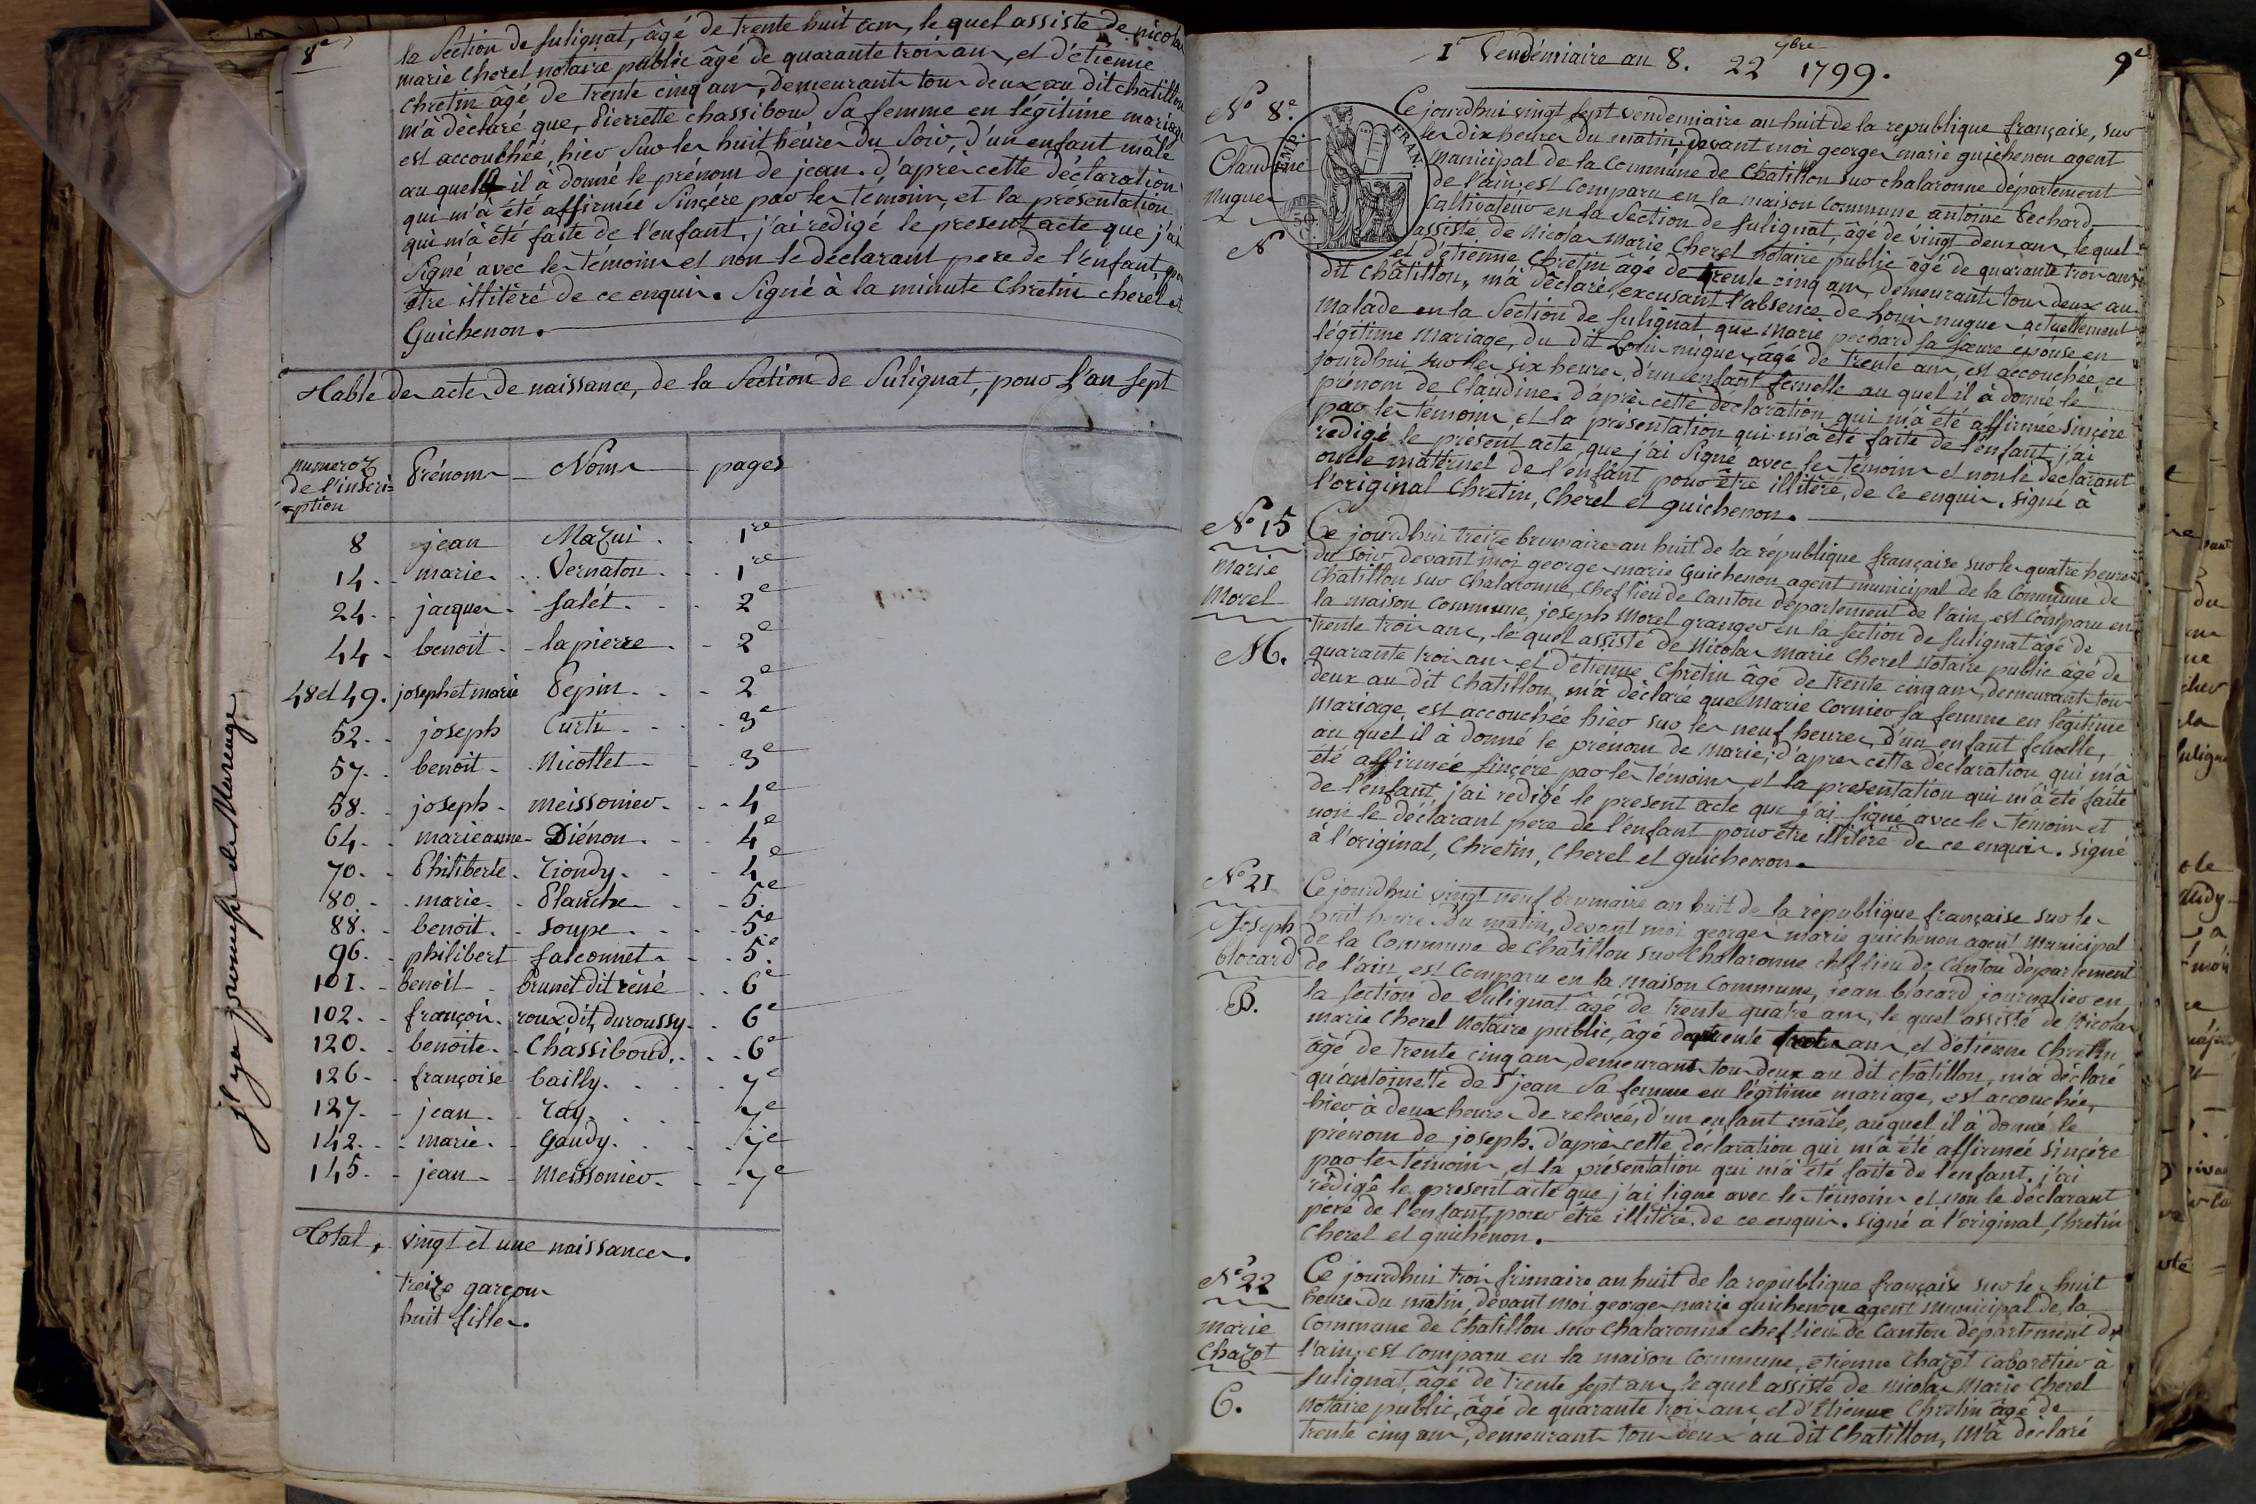 8e
la Section de sulignat, âgé de trente huit ans, le quel assisté de nicolas
marie Cherel notaire public âgé de quarante trois ans, et d'étienne
chretin âgé de trente cinq ans, demeurants tous deux au dit chatillon
m'a déclaré que, pierrette chassiboud sa femme en légitime mariage
est accouchée, hier sur les huit heures du soir, d'un enfant male
au quel il à donné le prénom de jean. d'après cette déclaration
qui m'à été affirmée sinçére par les témoins, et la présentation
qui m'a été faite de l'enfant, j'ai redigé le present acte que j'ai
signé avec les témoins et non le déclarant pere de l'enfant, pour
être illitéré de ce enquis. signé à la minute Chretin cherel et
Guichenon.
Table des actes de naissance, de la Section de Sulignat, pour l'an sept
numeros de l'inscri= Prénoms Noms pages
=ption
8 jean Mazui. 1re
14. marie. Vernaton. 1re
24. jacques. salét. 2e
44. benoit. lapierre. 2e
48 et 49. joseph et marie Pepin. 2e
52. joseph Curti. 3e
57. benoit. Nicollet. 3e
58. joseph. meissonier. 4e
64. marieanne Diénon. 4e
70. Philiberte. Tiondy. 4e
80. marie. Planche 5e
88. benoit. soupe. 5e
96. philibert falconnet 5e
101. benoit. brunet dit réné 6e
102. françois. roux dit duroussy. 6e
120. benoite. Chassiboud. 6e
126. françoise bailly. 7e
127. jean. ray. 7e
142. marie. gaudy. 7e
145. jean. meissonier. 7e
Total, vingt et une naissances.
treize garçons
huit filles.
1r Vendémiaire an 8. 22 7bre 1799.
9e
No 8e.
Claudine
nugues
N
EMP. FRAN.
Ce jourdhui vingt sept vendemiaire an huit de la republique française, sur
les dix heures du matin, devant moi georges marie guichenon agent
municipal de la Commune de Chatillon sur chalaronne département
de l'ain, est Comparu en la maison Commune antoine Pechard,
Cultivateur en la Section de sulignat, âgé de vingt deux ans, le quel
assisté de Nicolas Marie Cherel notaire public âgé de quarante trois ans,
et d'étienne Chretin âgé de trente cinq ans, demeurants tous deux au
dit Châtillon, m'à déclaré, excusant l'absence de Louis nugues actuellement
malade en la Section de sulignat que Marie pechard sa soeure épouse en
légitime Mariage, du dit Louis nugues, âgé de trente ans, est accouchée, ce
jourdhui sur les six heures, d'un enfant femelle au quel il à donné le
prénom de Claudine. d'après cette déclaration qui m'à été affirmée sinçére
par les témoins, et la présentation qui m'a été faite de l'enfant, j'ai
redigé le present acte, que j'ai signé avec les témoins et non le déclarant
oncle maternel de l'enfant pour être illitéré, de ce enquis. signé à
l'original Chretin, Cherel et guichenon.
No 15
Marie
Morel
M.
Ce jourdhui treize brumaire an huit de la république française sur les quatre heures
du soir devant moi georges marie Guichenon agent municipal de la Commune de
Chatillon sur Chalaronne, Chef lieu de Canton département de l'ain, est Comparu en
la maison Commune, joseph Morel granger en la section de sulignat âgé de
trente trois ans, le quel assisté de Nicolas Marie Cherel Notaire public âgé de
quarante trois ans et d'etienne Chretin âgé de trente cinq ans, demeurants tous
deux au dit Chatillon, m'a déclaré que marie Cornier sa femme en légitime
mariage, est accouchée hier sur les neuf heures, d'un enfant femelle,
au quel il a donné le prénom de Marie; d'apres cette déclaration qui m'à
été affirmée sinçéré par les témoins, et la presentation qui m'à été faite
de l'enfant, j'ai redigé le present acte que j'ai signé avec les témoins et
non le déclarant pere de l'enfant pour être illitéré de ce enquis. signé
à l'original, Chretin, Cherel et guichenon.
No 21
Joseph
blocard
B.
Ce jourdhui vingt neuf brumaire an huit de la république française sur les
huit heures du matin, devant moi georges marie guichenon agent municipal
de la Commune de Chatillon sur Chalaronne chef lieu de Canton département
de l'ain, est Comparu en la maison Commune, jean blocard journalier en
la section de sulignat âgé de trente quatre ans, le quel assisté de Nicolas
marie Cherel Notaire public, âgé de trente ans, et d'etienne Chretin
âgé de trente cinq ans, demeurant tous deux au dit châtillon, m'a déclaré
qu'antoinette de St jean sa femme en légitime mariage, est accouchée,
hier à deux heures de relevée, d'un enfant mâle, auquel il à donné le
prénom de joseph. d'après cette déclaration qui m'a été affirmée sincére
par les témoins, et la présentation qui m'a été faite de l'enfant. j'ai
rédigé le present acte que j'ai signé avec les témoins et non le déclarant
père de l'enfant, pour être illitéré. de ce enquis. signé à l'original, Chretin
Cherel et guichenon.
No 22
marie
Chazot
C.
Ce jourdhui trois frimaire an huit de la republique française sur les huit
heures du matin, devant moi georges marie guichenon agent municipal de la
Commune de Chatillon sur Chalaronne chef lieu de Canton departement de
l'ain, est Comparu en la maison Commune, etienne Chazot Cabaretier à
sulignat, âgé de trente sept ans, le quel assisté de nicolas Marie Cherel
Notaire public, âgé de quarante trois ans et d'Etienne Chretin âgé de
trente cinq ans, demeurants tous deux au dit Chatillon, m'a déclaré